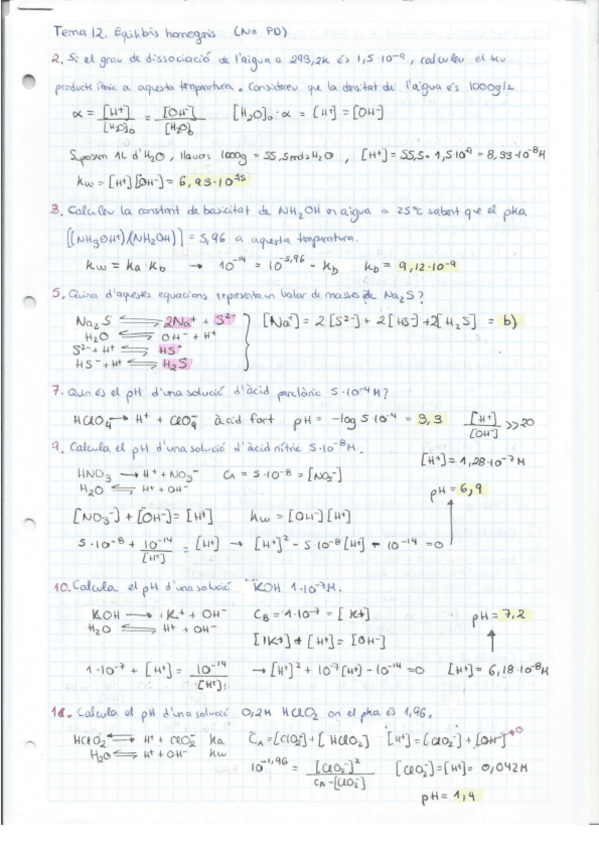 Tema 12. Equilibris homogenis (No PD)
2. Si el grau de dissociació de l'aigua a 293,2K és 1,5·10⁻⁹, calculeu el seu
producte iònic a aquesta temperatura. Considereu que la densitat de l'aigua és 1000g/L
α = [H⁺]/[H₂O]₀ = [OH⁻]/[H₂O]₀ [H₂O]₀·α = [H⁺] = [OH⁻]
Suposem 1L d'H₂O, llavors 1000g = 55,5mols H₂O, [H⁺] = 55,5·1,5·10⁻⁹ = 8,33·10⁻⁸M
Kw = [H⁺][OH⁻] = 6,93·10⁻¹⁵
3. Calculeu la constant de basicitat de NH₂OH en aigua a 25ºC sabent que el pKa
[(NH₃OH⁺)/(NH₂OH)] = 5,96 a aquesta temperatura.
Kw = Ka·Kb → 10⁻¹⁴ = 10⁻⁵,⁹⁶ · Kb Kb = 9,12·10⁻⁹
5. Quina d'aquestes equacions representa un balanç de masses de Na₂S?
Na₂S ⇌ 2Na⁺ + S²⁻ [Na⁺] = 2[S²⁻] + 2[HS⁻] + 2[H₂S] = b)
H₂O ⇌ OH⁻ + H⁺
S²⁻ + H⁺ ⇌ HS⁻
HS⁻ + H⁺ ⇌ H₂S
7. Quin és el pH d'una solució d'àcid perclòric 5·10⁻⁴M?
HClO₄ → H⁺ + ClO₄⁻ àcid fort pH = -log 5·10⁻⁴ = 3,3 [H⁺]/[OH⁻] >> 20
9. Calcula el pH d'una solució d'àcid nítric 5·10⁻⁸M.
HNO₃ → H⁺ + NO₃⁻ CA = 5·10⁻⁸ = [NO₃⁻] [H⁺] = 1,28·10⁻⁷M
H₂O ⇌ H⁺ + OH⁻ pH = 6,9
[NO₃⁻] + [OH⁻] = [H⁺] Kw = [OH⁻][H⁺]
5·10⁻⁸ + 10⁻¹⁴/[H⁺] = [H⁺] → [H⁺]² - 5·10⁻⁸[H⁺] - 10⁻¹⁴ = 0
10. Calcula el pH d'una solució KOH 1·10⁻⁷M.
KOH → K⁺ + OH⁻ CB = 1·10⁻⁷ = [K⁺] pH = 7,2
H₂O ⇌ H⁺ + OH⁻ [K⁺] + [H⁺] = [OH⁻]
1·10⁻⁷ + [H⁺] = 10⁻¹⁴/[H⁺] → [H⁺]² + 10⁻⁷[H⁺] - 10⁻¹⁴ = 0 [H⁺] = 6,18·10⁻⁸M
12. Calcula el pH d'una solució 0,2M HClO₂ on el pKa és 1,96.
HClO₂ ⇌ H⁺ + ClO₂⁻ Ka CA = [ClO₂⁻] + [HClO₂] [H⁺] = [ClO₂⁻] + [OH⁻] 0
H₂O ⇌ H⁺ + OH⁻ Kw
10⁻¹,⁹⁶ = [ClO₂⁻]²/CA - [ClO₂⁻] [ClO₂⁻] = [H⁺] = 0,042M
pH = 1,4